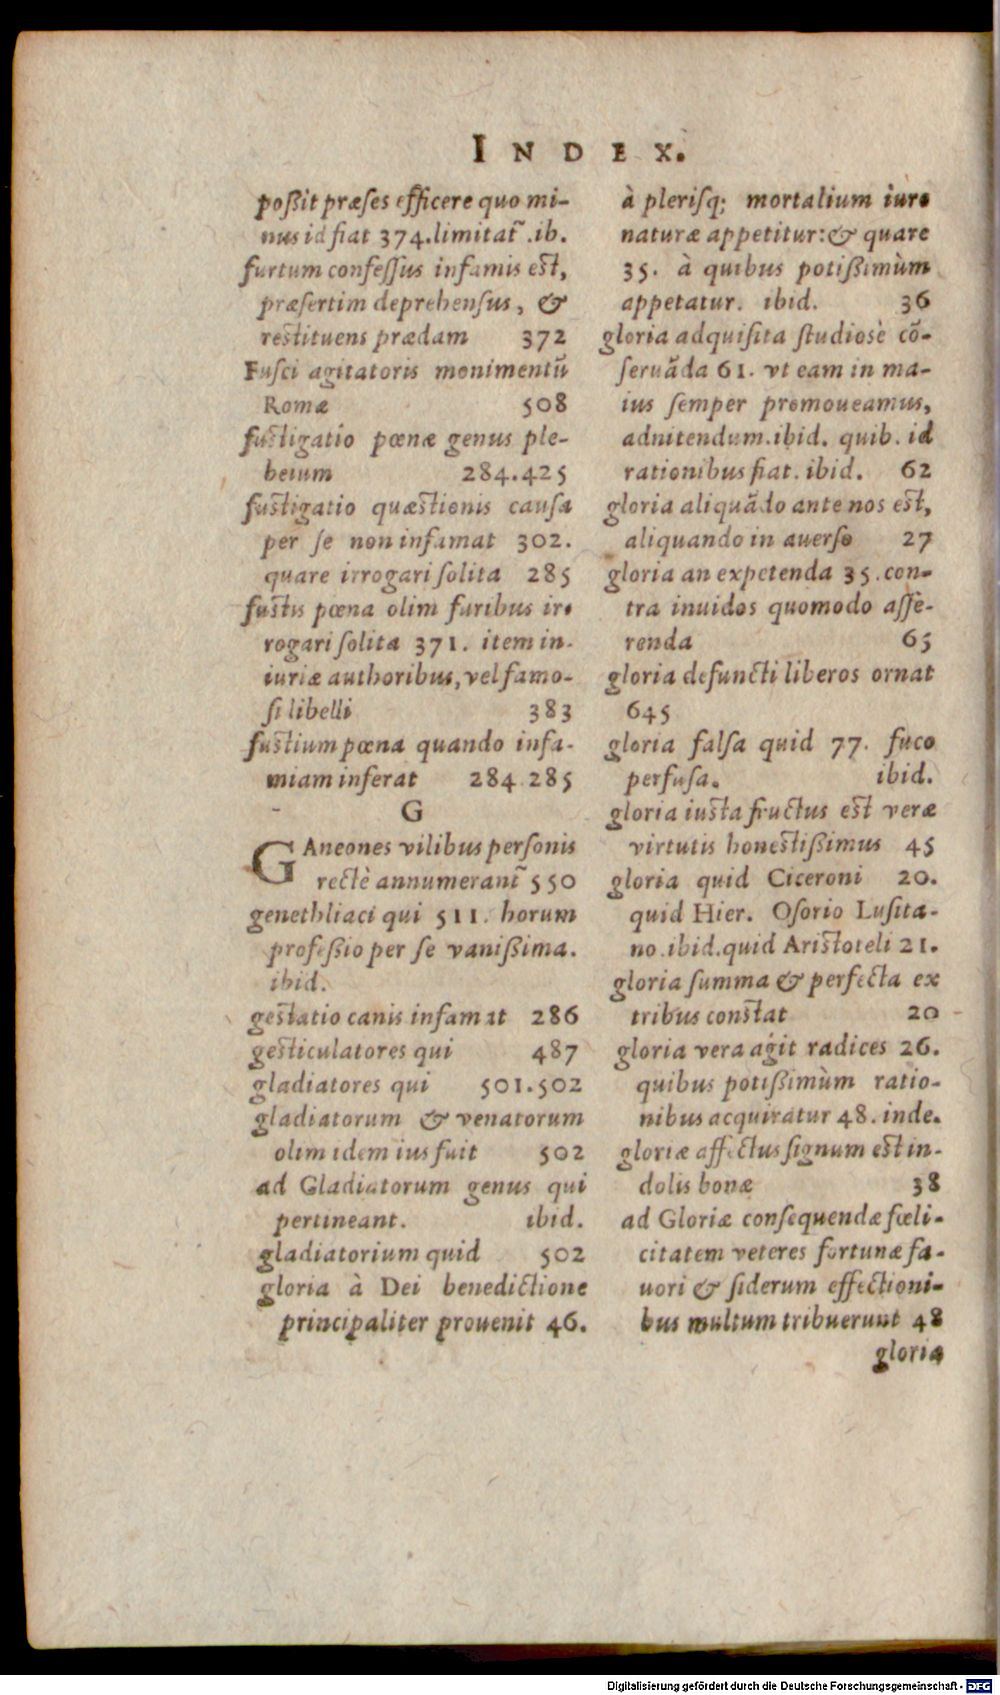 INDEX.
poßit præſes efficere quo mi-
nus id fiat 374. limitat᷉ .ib.
furtum confeſſus infamis est,
præſertim deprehenſus, &
restituens prædam 372
Fuſci agitatoris monimentū
Romæ 508
fustigatio pœnæ genus ple-
beium 284.425
fustigatio quæstionis cauſa
per ſe non infamat 302.
quare irrogari ſolita 285
fustis pœna olim furibus ir-
rogari ſolita 371. item in-
iuriæ authoribus, vel famo-
ſi libelli 383
fustium pœna quando infa-
miam inferat 284.285
G
GAneones vilibus perſonis
rectè annumerant᷉ 550
genethliaci qui 511. horum
profeßio per ſe vanißima.
ibid.
gestatio canis infamat 286
gesticulatores qui 487
gladiatores qui 501.502
gladiatorum & venatorum
olim idem ius fuit 502
ad Gladiatorum genus qui
pertineant. ibid.
gladiatorium quid 502
gloria à Dei benedictione
principaliter prouenit 46.
à pleriſq; mortalium iure
naturæ appetitur: & quare
35. à quibus potißimùm
appetatur. ibid. 36
gloria adquiſita ſtudiosè cō-
ſeruāda 61. vt eam in ma-
ius ſemper promoueamus,
adnitendum. ibid. quib. id
rationibus fiat. ibid. 62
gloria aliquādo ante nos est,
aliquando in auerſo 27
gloria an expetenda 35. con-
tra inuidos quomodo aſſe-
renda 65
gloria defuncti liberos ornat
645
gloria falſa quid 77. fuco
perfuſa. ibid.
gloria iusta fructus est veræ
virtutis honestißimus 45
gloria quid Ciceroni 20.
quid Hier. Oſorio Luſita-
no. ibid. quid Aristoteli 21.
gloria ſumma & perfecta ex
tribus constat 20
gloria vera agit radices 26.
quibus potißimùm ratio-
nibus acquiratur 48. inde.
gloriæ affectus ſignum est in-
dolis bonæ 38
ad Gloriæ conſequendæ fœli-
citatem veteres fortunæ fa-
uori & ſiderum effectioni-
bus multum tribuerunt 48
gloria
Digitalisierung gefördert durch die Deutsche Forschungsgemeinschaft - DFG